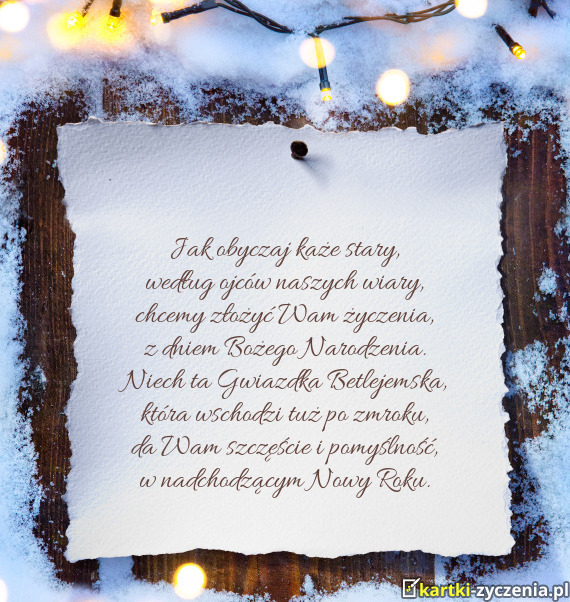 Jak obyczaj każe stary,
według ojców naszych wiary,
chcemy złożyć Wam życzenia,
z dniem Bożego Narodzenia.
Niech ta Gwiazdka Betlejemska,
która wschodzi tuż po zmroku,
da Wam szczęście i pomyślność,
w nadchodzącym Nowy Roku.
kartki-zyczenia.pl